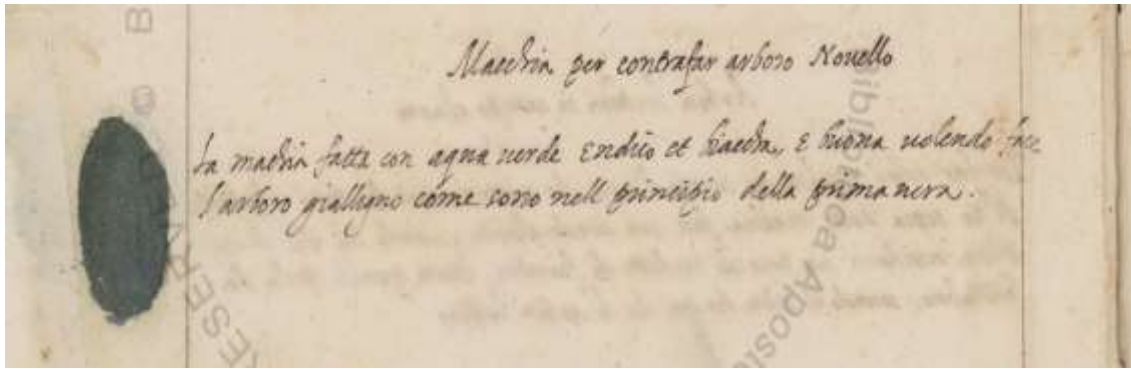 Macchia per contrafar arboro Nouello
La machia fatta con aqua uerde Endico et biacha, E buona uolendo fare
l'arboro gialligno come sono nell principio della prima uera.